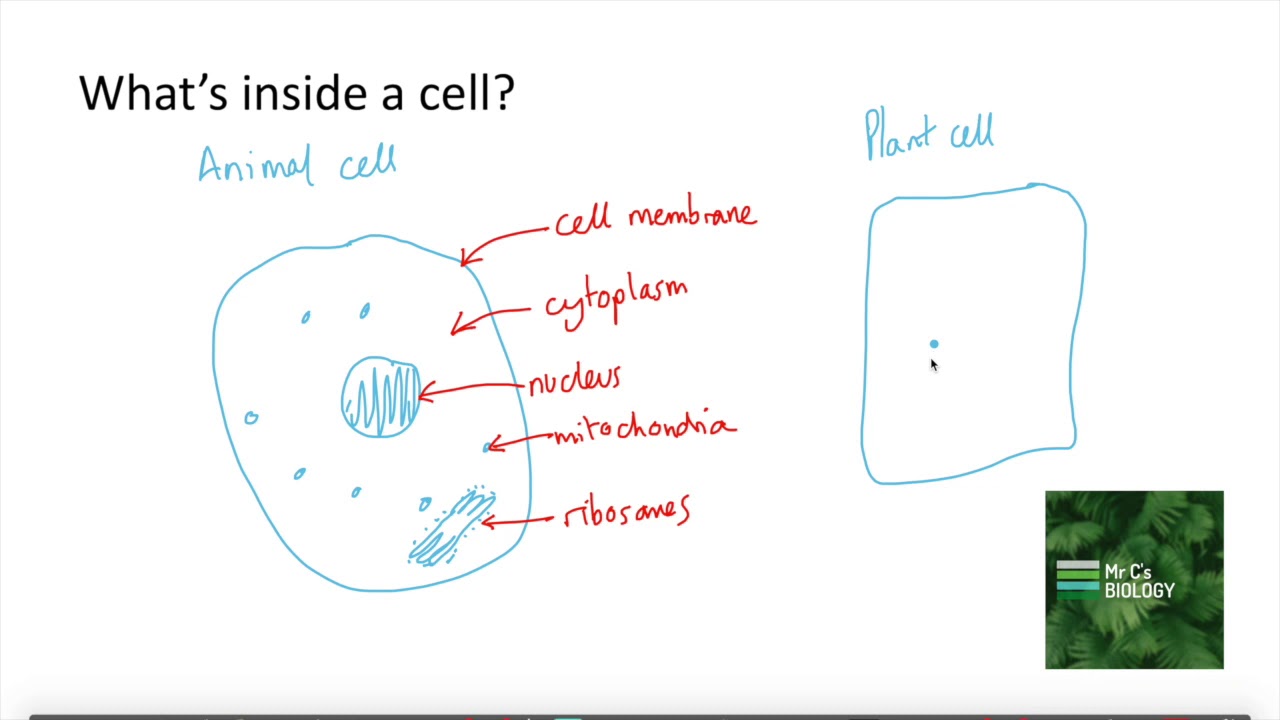 What's inside a cell?
Animal cell
Plant cell
cell membrane
cytoplasm
nucleus
mitochondria
ribosomes
Mr C's
BIOLOGY